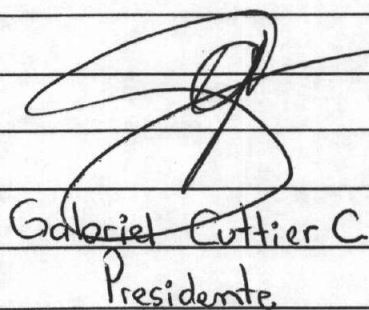 Gabriel Cuttier C.
Presidente.